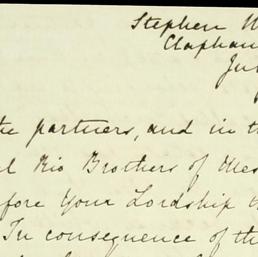 Stephen
Clapham
he partners, and in th
Rio Brothers of Mes
fore Your Lordship
In consequence of th